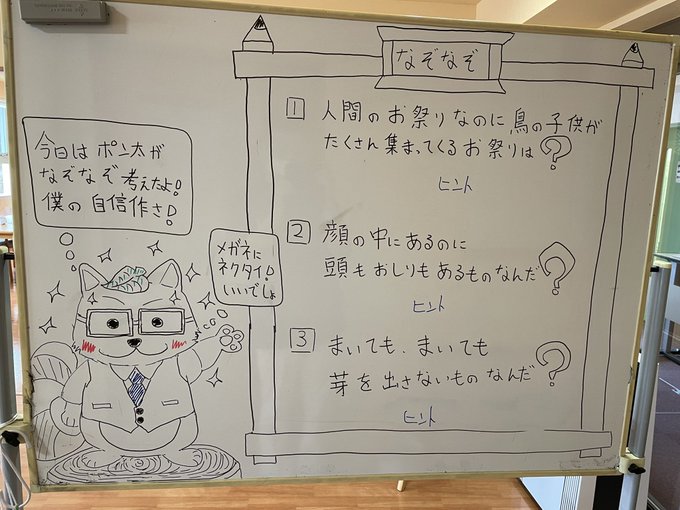 なぞなぞ
今日は ポン太が
なぞなぞ 考えたよ!
僕の 自信作さ!
メガネに
ネクタイ!
いいでしょ
1 人間の お祭り なのに 鳥の子供が
たくさん 集まってくる お祭りは?
ヒント
2 顔の 中に あるのに
頭も おしりも あるもの なんだ?
ヒント
3 まいても、まいても
芽を 出さない もの なんだ?
ヒント